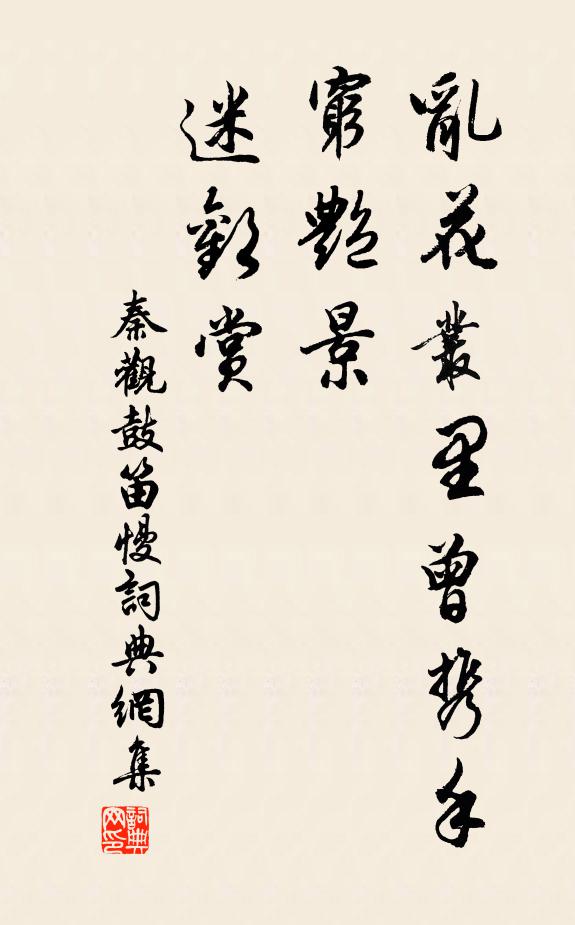 亂花叢里曾携手
窮艷景
迷歡賞
秦觀鼓笛慢詞典網集
詞典网印